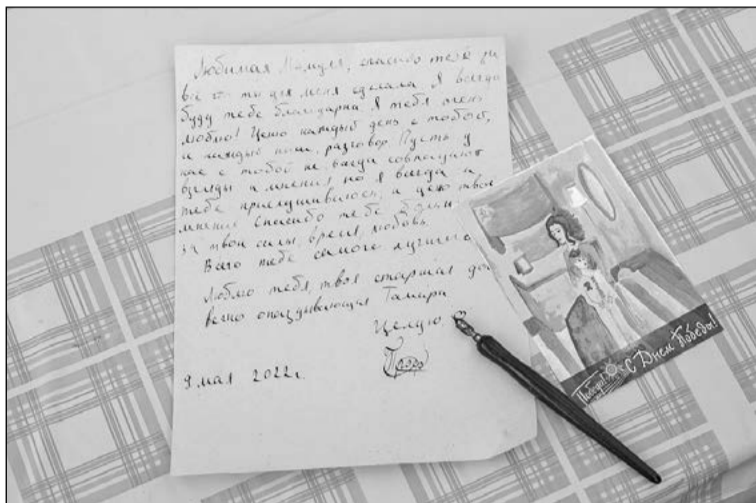 Любимая Мамуля, спасибо тебе за
всё что ты для меня сделала. Я всегда
буду тебе благодарна. Я тебя очень
люблю! Ценю каждый день с тобой,
и каждый наш разговор. Пусть у
нас с тобой не всегда совпадают
взгляды и мнения но я всегда к
тебе прислушиваюсь, и ценю твое
мнение. Спасибо тебе
за твои силы, время, любовь.
Всего тебе самого
Люблю тебя, твоя старшая
вечно опаздывающая Тамара
Целую
9 мая 2022г.
С Днем Победы!